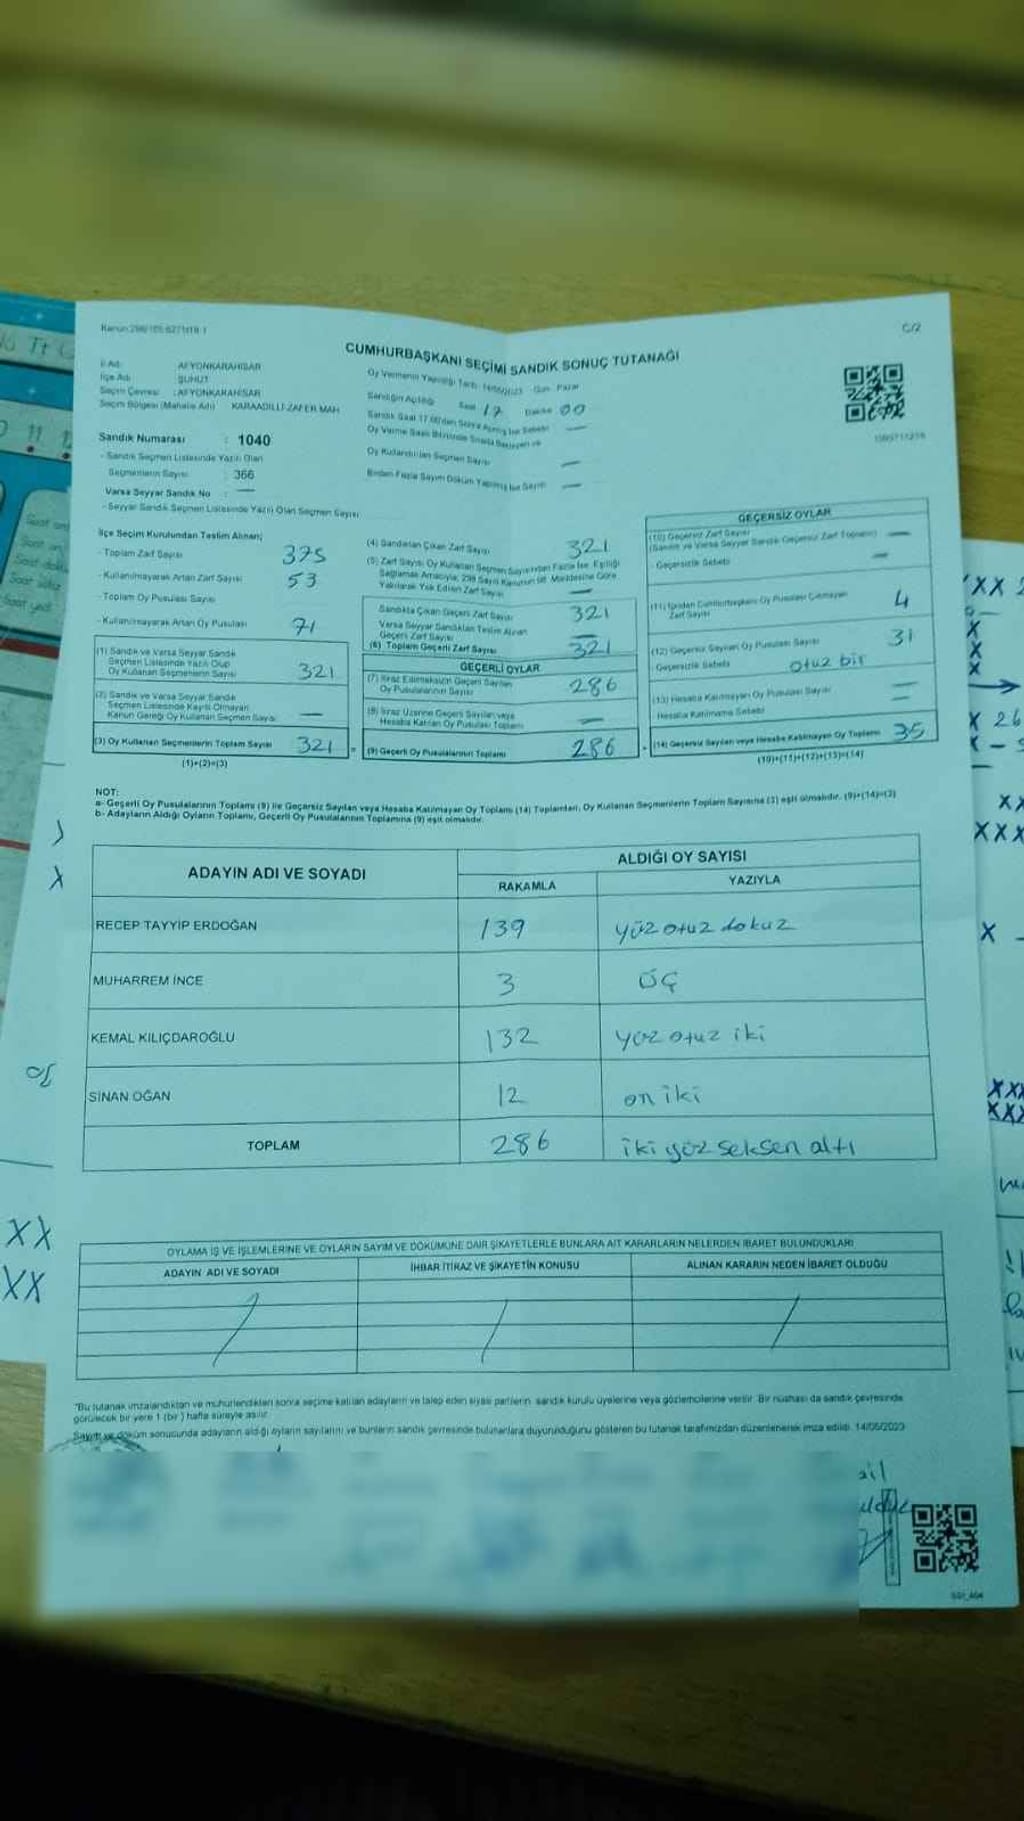 C/2
CUMHURBAŞKANI SEÇİMİ SANDIK SONUÇ TUTANAĞI
İli Adı : AFYONKARAHİSAR
İlçe Adı : ŞUHUT
Seçim Çevresi : AFYONKARAHİSAR
Seçim Bölgesi (Mahalle Adı) : KARAADİLLİ-ZAFER MAH
Sandık Numarası : 1040
- Sandık Seçmen Listesinde Yazılı Olan
Seçmenlerin Sayısı : 366
Varsa Seyyar Sandık No : —
- Seyyar Sandık Seçmen Listesinde Yazılı Olan Seçmen Sayısı
Sandığın Açıldığı Saat 17 Dakika 00
Oy Kullandırılan Seçmen Sayısı —
Birden Fazla Sayım Döküm Yapılmış İse Sayısı —
İlçe Seçim Kurulundan Teslim Alınan;
- Toplam Zarf Sayısı 375
- Kullanılmayarak Artan Zarf Sayısı 53
- Toplam Oy Pusulası Sayısı
- Kullanılmayarak Artan Oy Pusulası 71
(1) Sandık ve Varsa Seyyar Sandık
Seçmen Listesinde Yazılı Olup
Oy Kullanan Seçmenlerin Sayısı 321
(2) Sandık ve Varsa Seyyar Sandık
Seçmen Listesinde Kayıtlı Olmayan
Kanun Gereği Oy Kullanan Seçmen Sayısı —
(3) Oy Kullanan Seçmenlerin Toplam Sayısı 321 =
(1)+(2)=(3)
(4) Sandıktan Çıkan Zarf Sayısı 321
(5) Zarf Sayısı Oy Kullanan Seçmen Sayısından Fazla İse, Eşitliği
Sağlamak Amacıyla, 298 Sayılı Kanunun 98. Maddesine Göre
Yakılarak Yok Edilen Zarf Sayısı —
Sandıkta Çıkan Geçerli Zarf Sayısı 321
Varsa Seyyar Sandıktan Teslim Alınan
Geçerli Zarf Sayısı —
(6) Toplam Geçerli Zarf Sayısı 321
GEÇERLİ OYLAR
(7) İtiraz Edilmeksizin Geçerli Sayılan
Oy Pusulalarının Sayısı 286
(8) İtiraz Üzerine Geçerli Sayılan veya
Hesaba Katılan Oy Pusulası Toplamı —
(9) Geçerli Oy Pusulalarının Toplamı 286
GEÇERSİZ OYLAR
(10) Geçersiz Zarf Sayısı —
(Sandık ve Varsa Seyyar Sandık Geçersiz Zarf Toplamı)
- Geçersizlik Sebebi —
(11) İçinden Cumhurbaşkanı Oy Pusulası Çıkmayan
Zarf Sayısı 4
(12) Geçersiz Sayılan Oy Pusulası Sayısı 31
- Geçersizlik Sebebi otuz bir
(13) Hesaba Katılmayan Oy Pusulası Sayısı —
Hesaba Katılmama Sebebi —
(14) Geçersiz Sayılan veya Hesaba Katılmayan Oy Toplamı 35
(10)+(11)+(12)+(13)=(14)
NOT:
a- Geçerli Oy Pusulalarının Toplamı (9) ile Geçersiz Sayılan veya Hesaba Katılmayan Oy Toplamı (14) Toplamları, Oy Kullanan Seçmenlerin Toplam Sayısına (3) eşit olmalıdır. (9)+(14)=(3)
b- Adayların Aldığı Oyların Toplamı, Geçerli Oy Pusulalarının Toplamına (9) eşit olmalıdır.
ADAYIN ADI VE SOYADI
ALDIĞI OY SAYISI
RAKAMLA YAZIYLA
RECEP TAYYİP ERDOĞAN 139 yüz otuz dokuz
MUHARREM İNCE 3 üç
KEMAL KILIÇDAROĞLU 132 yüz otuz iki
SİNAN OĞAN 12 on iki
TOPLAM 286 iki yüz seksen altı
OYLAMA İŞ VE İŞLEMLERİNE VE OYLARIN SAYIM VE DÖKÜMÜNE DAİR ŞİKAYETLERLE BUNLARA AİT KARARLARIN NELERDEN İBARET BULUNDUKLARI
ADAYIN ADI VE SOYADI İHBAR İTİRAZ VE ŞİKAYETİN KONUSU ALINAN KARARIN NEDEN İBARET OLDUĞU
"Bu tutanak imzalandıktan ve mühürlendikten sonra seçime katılan adayların ve talep eden siyasi partilerin, sandık kurulu üyelerine veya gözlemcilerine verilir. Bir nüshası da sandık çevresinde
görülecek bir yere 1 (bir) hafta süreyle asılır.
Sayım ve döküm sonucunda adayların aldığı oyların sayılarını ve bunların sandık çevresinde bulunanlara duyurulduğunu gösteren bu tutanak tarafımızdan düzenlenerek imza edildi. 14/05/2023